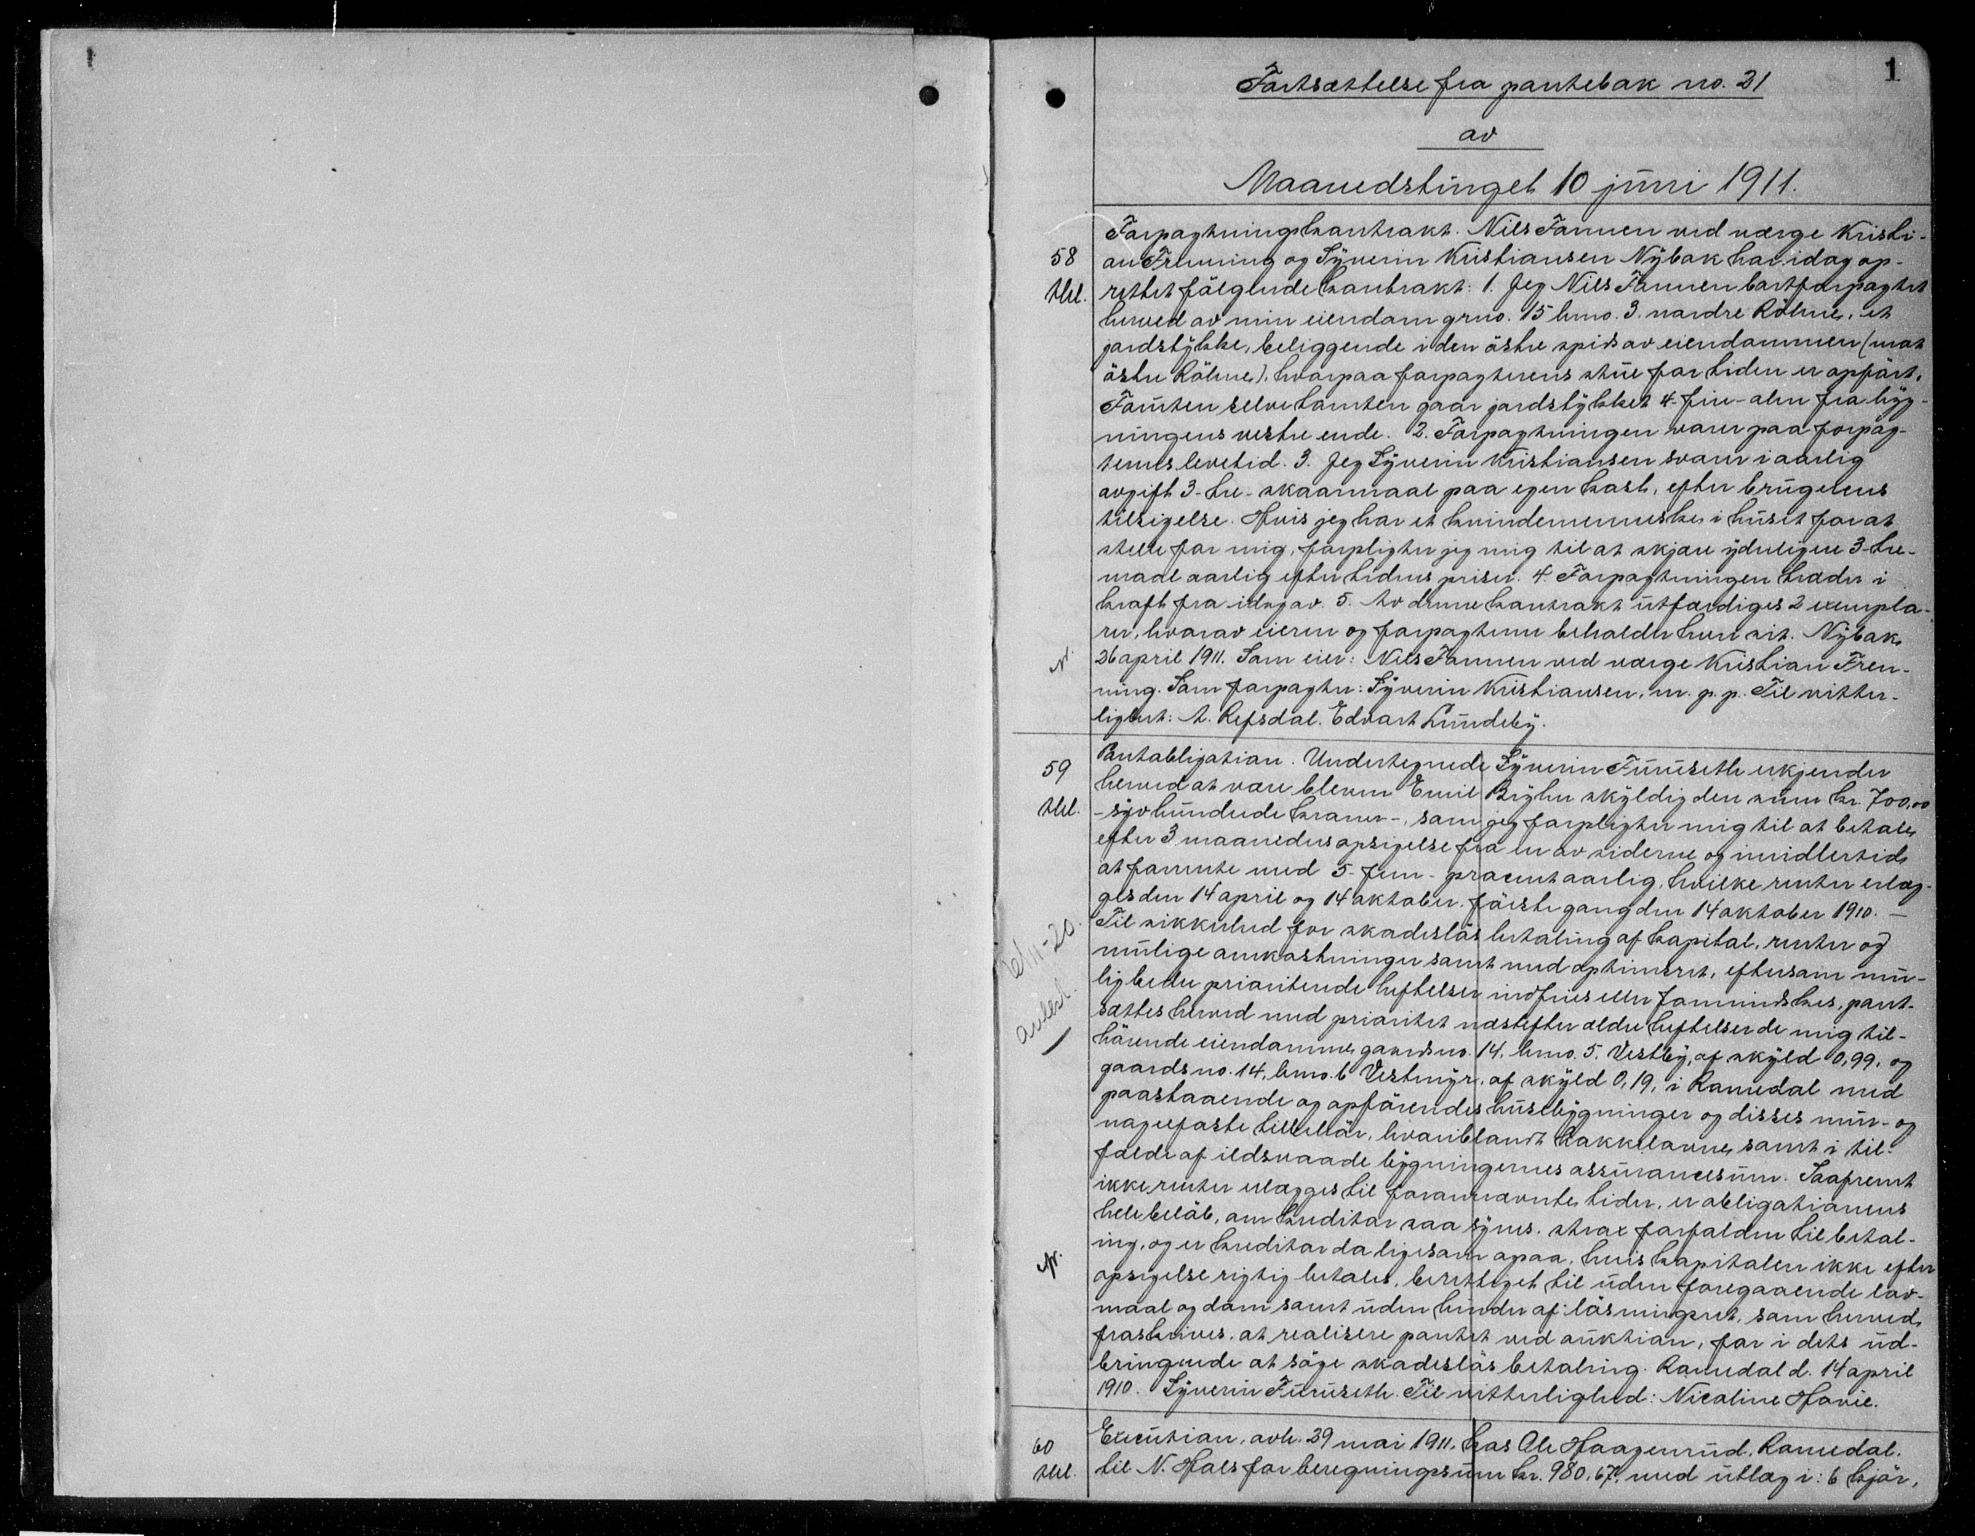 1
Fortsættelse fra pantebok no. 21
av
Maanedstinget 10 juni 1911.
58
Forpagtningskontrakt. Nils Fonnen ved værge Kristi-
an Frenning og Syverin Kristiansen Nybak har idag op-
rettet følgende kontrakt: 1. Jeg Nils Fonnen bortforpagtet
herved av min eiendom grno. 15 brno. 3. nordre Rølnes, et
jordstykke, beliggende i den østre spids av eiendommen (mot
østre Rølnes), hvorpaa forpagterens stue for tiden er opført.
Foruten selve tomten gaar jordstykket 4-fire-alen fra byg-
ningens vestre ende. 2. Forpagtningen varer paa forpag-
terens levetid. 3. Jeg Syverin Kristiansen svarer i aarlig
avgift 3-tre-skaarmaal paa egen kost, efter brugerens
tilsigelse. Hvis jeg har et kvindemenneske i huset for at
stelle for mig, forpligter jeg mig til at skjære yderligere 3-tre-
maal aarlig efter tidens priser. 4. Forpagtningen træder i
kraft fra idag av. 5. Av denne kontrakt utfærdiges 2 exempla-
rer, hvorav eieren og forpagteren beholder hver sit. Nybak
26 april 1911. Som eier: Nils Fonnen ved værge Kristian Fren-
ning. Som forpagter: Syverin Kristiansen, m. p. p. Til vitter-
lighet: A. Refsdal. Edvart Lundeby.
59
Pantobligation. Undertegnede Syverin Furuseth erkjender
herved at være bleven Emil Bryhn skyldig den sum kr. 700,00
-syvhundrede kroner-, som jeg forpligter mig til at betale
efter 3 maaneders opsigelse fra en av siderne og imidlertid
at forrente med 5-fem-procent aarlig, hvilke renter erlæg-
ges den 14 april og 14 oktober. første gang den 14 oktober 1910. —
Til sikkerhed for skadesløs betaling af kapital, renter og
mulige omkostninger samt med optrinsret, eftersom mu-
lig bedre prioriterede heftelser indfries eller formindskes, pant-
sættes herved med prioritet næstefter ældre heftelser de mig til-
hørende eiendomme gaardsno. 14, brno. 5. Vestby, af skyld 0,99, og
gaardsno. 14, brno. 6 Vestmyr, af skyld 0,19, i Ramedal med
paastaaende og opførendes husebygninger og disses mur- og
naglefaste tilbehør, hvoriblandt kakkelovne, samt i til-
fælde af ildsvaade bygningernes assurancesum. Saafremt
ikke renter erlægges til forannævnte tider, er obligationens
hele beløb, om kreditor saa synes. strax forfalden til betal-
ing, og er kreditor da ligesom ogsaa, hvis kapitalen ikke efter
opsigelse rigtig betales, berettiget til uden foregaaende lov-
maal og dom samt uden hinder af løsningsret, som herved
fraskrives, at realisere pantet ved auktion, for i dets ud-
bringende at søge skadesløs betaling. Ramedal d. 14 april
1910. Syverin Furuseth. Til vitterlighed: Nicoline Hovie.
avlest.
60
Execution, avh. 29 mai 1911. hos Ole Haagenrud, Ramedal.
til N. Hals for beregningssum kr. 980,67, med utlæg i: 6 kjør,